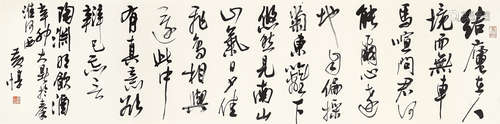 結廬在人
境而無車
馬喧問君何
能爾心遠
地自偏採
菊東籬下
悠然見南山
山氣日夕佳
飛鳥相與
還此中
有真意欲
辯已忘言
陶淵明飲酒
辛卯大暑於秦
淮河西 黄惇